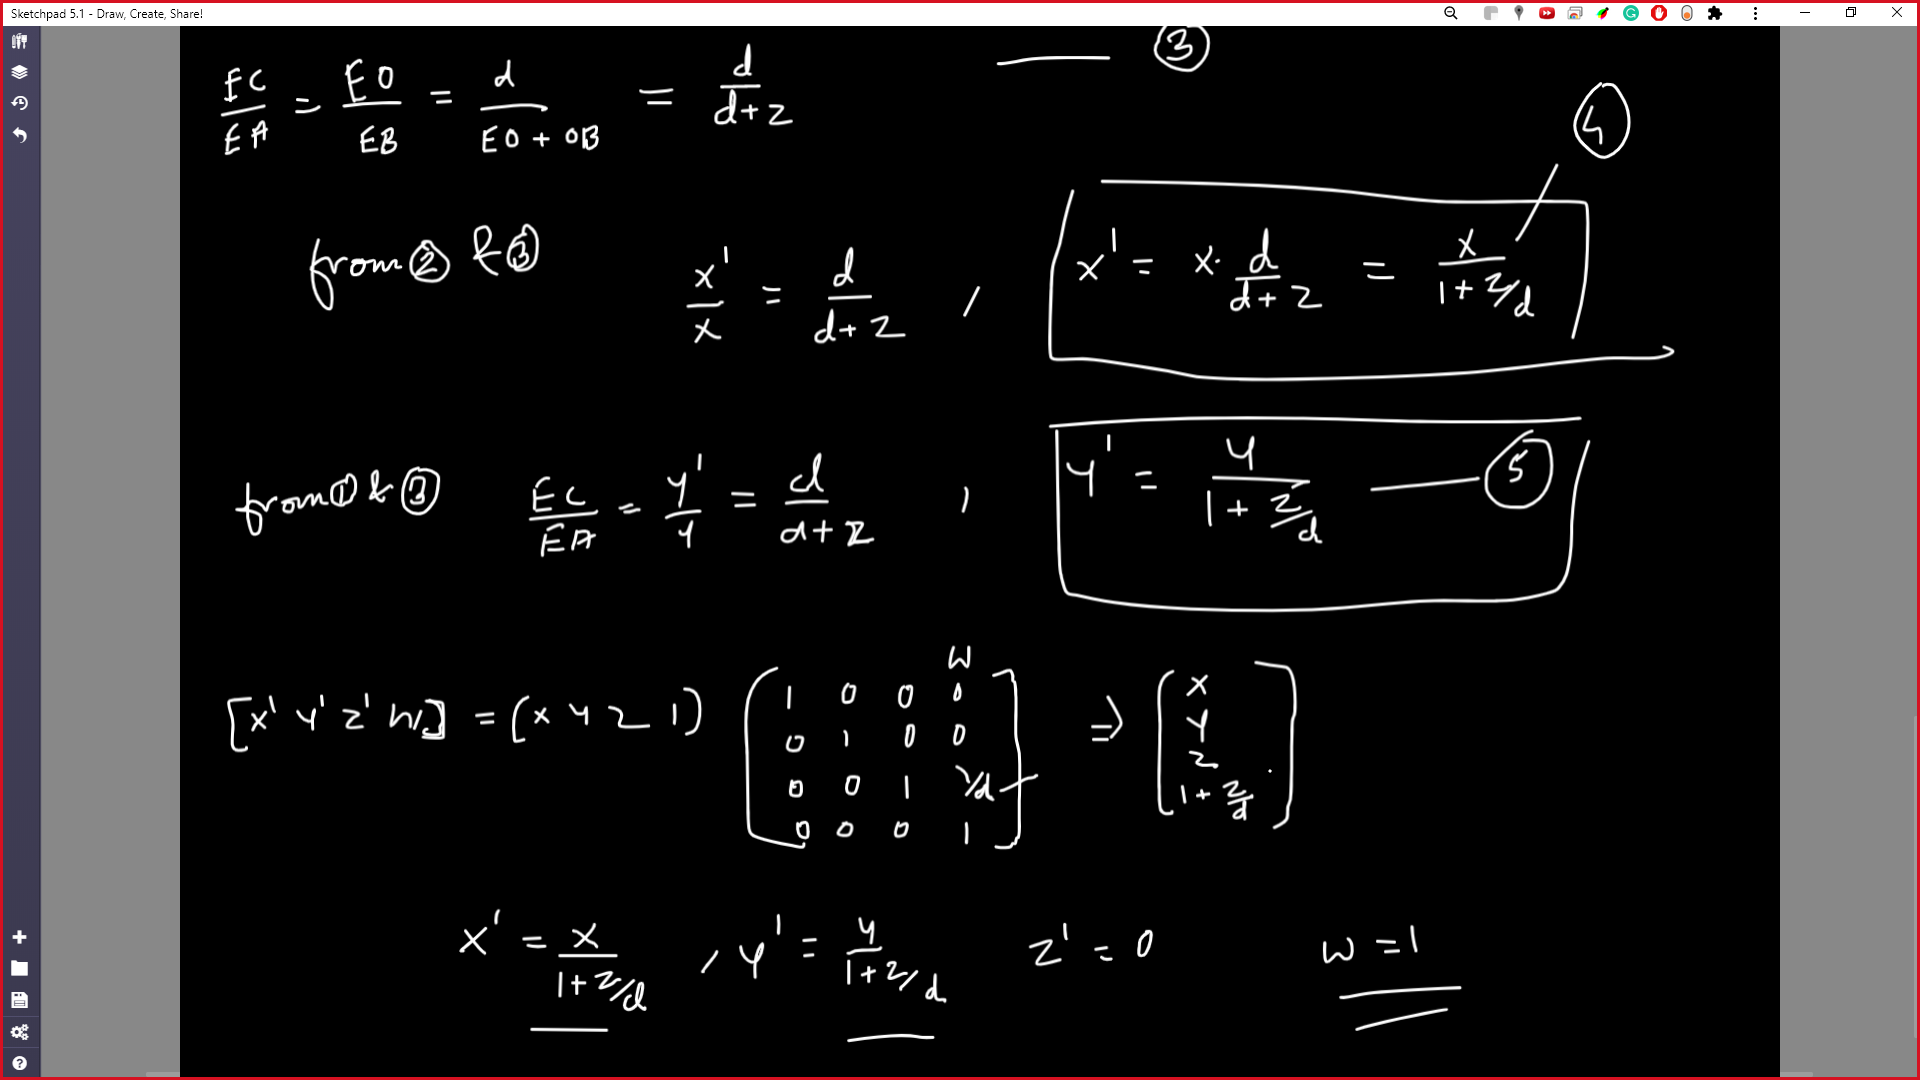 Sketchpad 5.1 - Draw, Create, Share!
EC/EA = EO/EB = d/(EO + OB) = d/(d+z) —— ③
from ② & ③ x'/x = d/(d+z) , x' = x · d/(d+z) = x/(1+z/d) — ④
from ① & ③ EC/EA = y'/y = d/(d+z) , y' = y/(1+z/d) —— ⑤
w
[x' y' z' w] = [x y z 1] [1 0 0 0 ⇒ [x
0 1 0 0 y
0 0 1 1/d z
0 0 0 1] 1 + z/d]
x' = x/(1+z/d) , y' = y/(1+z/d) z' = 0 w = 1